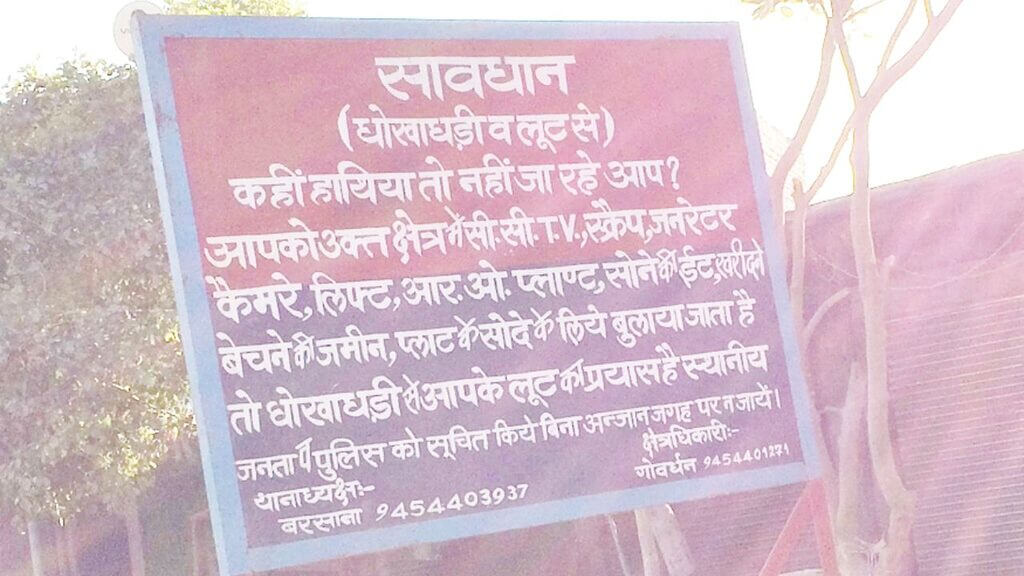 सावधान
(धोखाधड़ी व लूट से)
कहीं हाथिया तो नहीं जा रहे आप?
आपको उक्त क्षेत्र में सी.सी. T.V., स्क्रैप, जनरेटर
कैमरे, लिफ्ट, आर.ओ. प्लाण्ट, सोने की ईंट, खरीदने
बेचने की जमीन, प्लाट के सोदे के लिये बुलाया जाता है
तो धोखाधड़ी से आपके लूट का प्रयास है स्थानीय
जनता व पुलिस को सूचित किये बिना अन्जान जगह पर न जायें।
थानाध्यक्षः-
बरसाना 9454403937
क्षेत्रधिकारीः-
गोवर्धन 9454401271